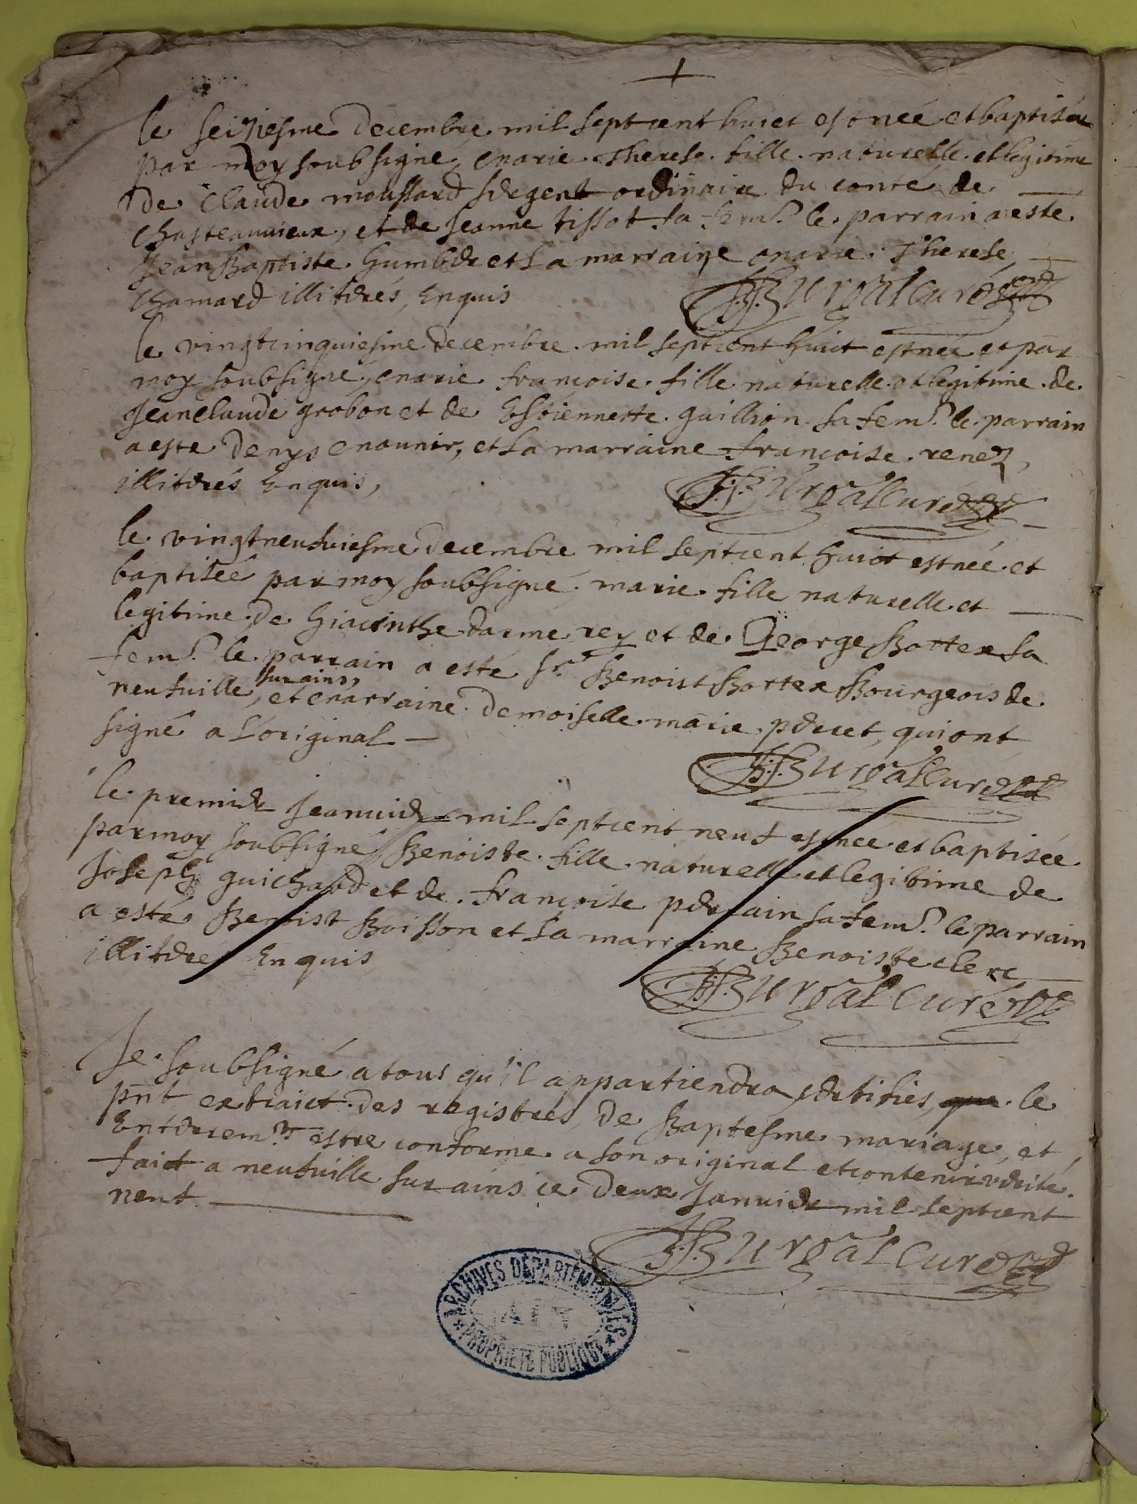 le seiziesme decembre mil sept cent huict est née et baptisée
par moy soubsigné, marie Therese fille naturelle et legitime
de Claude moussard sergent ordinaire du conté de
chasteauvieux, et de Jeanne tissot sa fem.e le parrain a esté
Jean Baptiste humbert et la marraine marie Therese
Chamard illitérés, Enquis
J:J: Burgal Curé
le vingtcinquiesme decembre mil sept cent huict est née et par
moy soubsigné, marie francoise fille naturelle et legitime de
Jeanclaude grobon et de Estiennette guillion sa fem.e le parrain
a esté denys monnier, et la marraine francoise renez,
illitérés Enquis,
J:J: Burgal Curé
le vingtneufviesme decembre mil sept cent huict est née et
baptisée par moy soubsigné marie fille naturelle et
legitime de Giacinthe darmerey et de George Bottex sa
fem.e le parrain a esté Sr. Benoist Bottex Bourgeois de
neufville sur ains, et marraine demoiselle marie peret, qui ont
signé a l'original
J:J: Burgal Curé
le premier Jeanvier mil sept cent neuf est née et baptisée
par moy soubsigné Benoiste fille naturelle et legitime de
Joseph guichard et de francoise perrain sa fem.e le parrain
a esté Benoist Boisson et la marraine Benoiste clerc
illitérés Enquis
J:J: Burgal Curé
Je soubsigné a tous qu'il appartiendra certifies, que le
pnt extraict des registres de Baptesme mariage, et
Enterrem.t estre conforme a son original et contenir verité.
faict a neufville sur ains ce deux Janvier mil sept cent
neuf
J:J: Burgal Curé
ARCHIVES DÉPARTEMENTALES
AIN
PROPRIÉTÉ PUBLIQUE